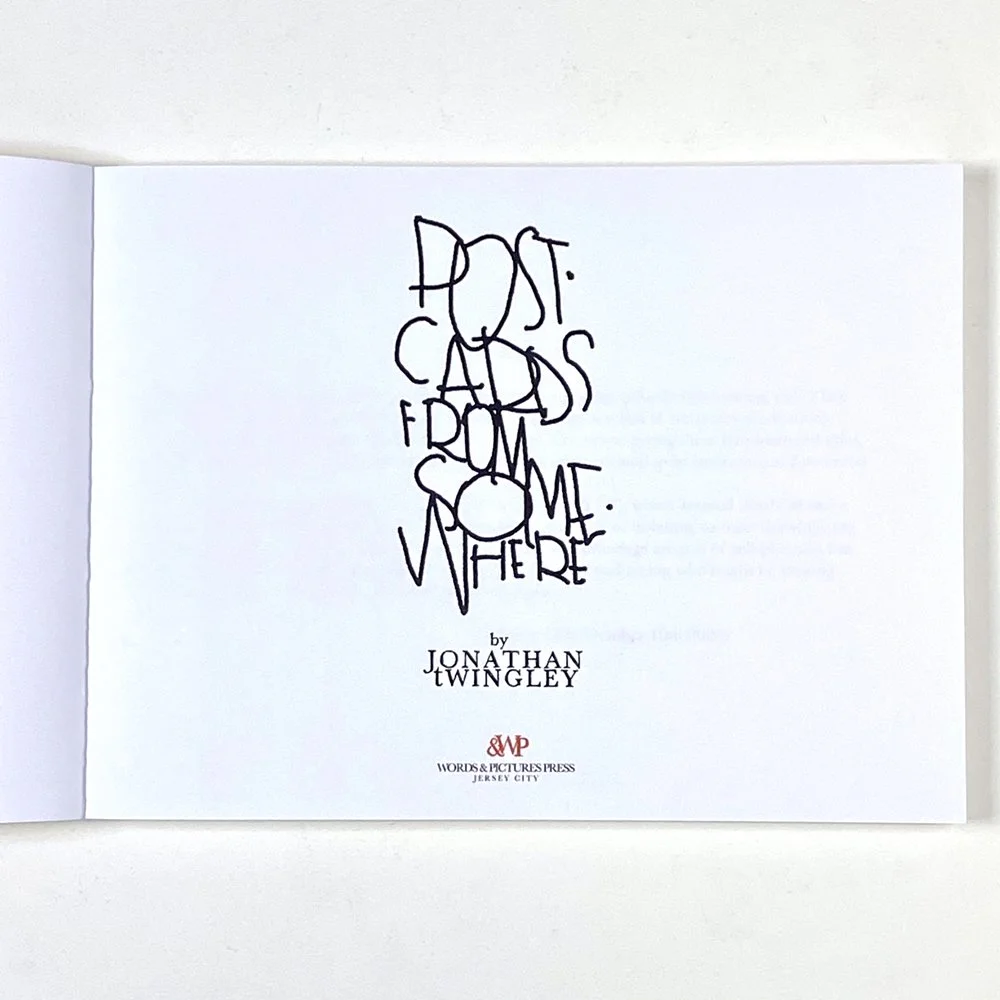 POST.
CARDS
FROM
SOME.
WHERE
by
JONATHAN
tWINGLEY
&WP
WORDS & PICTURES PRESS
JERSEY CITY